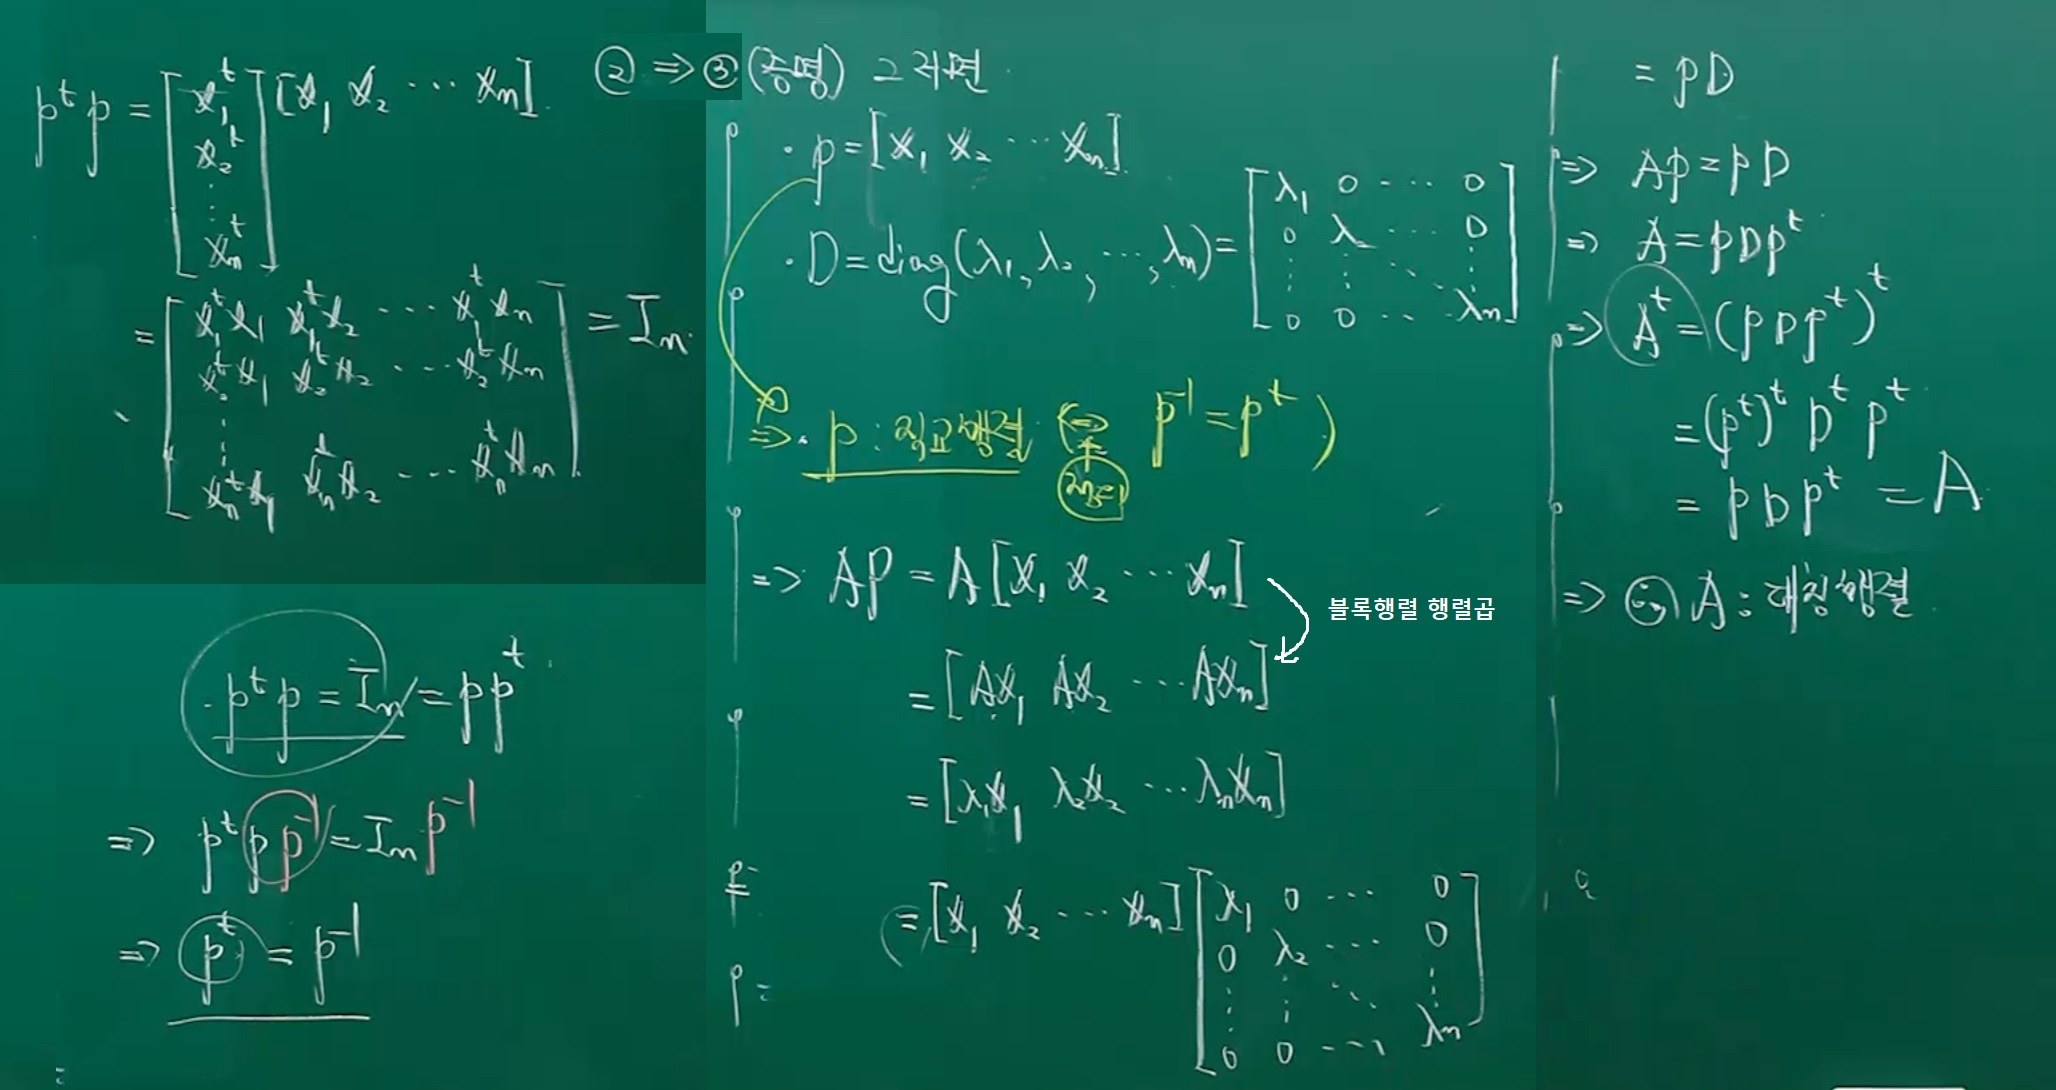 pᵗp = [x₁ᵗ x₂ᵗ ⋮ xₙᵗ] [x₁ x₂ ⋯ xₙ]
= [x₁ᵗx₁ x₁ᵗx₂ ⋯ x₁ᵗxₙ
x₂ᵗx₁ x₂ᵗx₂ ⋯ x₂ᵗxₙ
⋮
xₙᵗx₁ xₙᵗx₂ ⋯ xₙᵗxₙ] = Iₙ.
· pᵗp = Iₙ = ppᵗ.
⇒ pᵗpp⁻¹ = Iₙp⁻¹
⇒ pᵗ = p⁻¹
② ⇒ ③ (증명) 그러면
· p = [x₁ x₂ ⋯ xₙ]
· D = diag(λ₁, λ₂, ⋯, λₙ) = [λ₁ 0 ⋯ 0
0 λ₂ ⋯ 0
⋮ ⋮ ⋱ ⋮
0 0 ⋯ λₙ]
⇒ · p : 직교행렬 ⇔ p⁻¹ = pᵗ )
⇒ AP = A[x₁ x₂ ⋯ xₙ]
블록행렬 행렬곱
= [Ax₁ Ax₂ ⋯ Axₙ]
= [λ₁x₁ λ₂x₂ ⋯ λₙxₙ]
= [x₁ x₂ ⋯ xₙ] [λ₁ 0 ⋯ 0
0 λ₂ ⋯ 0
⋮ ⋮ ⋱ ⋮
0 0 ⋯ λₙ]
= pD
⇒ Ap = pD
⇒ A = pDpᵗ
⇒ Aᵗ = (pDpᵗ)ᵗ
= (pᵗ)ᵗDᵗpᵗ
= pDpᵗ = A
⇒ ∴ A : 대칭행렬